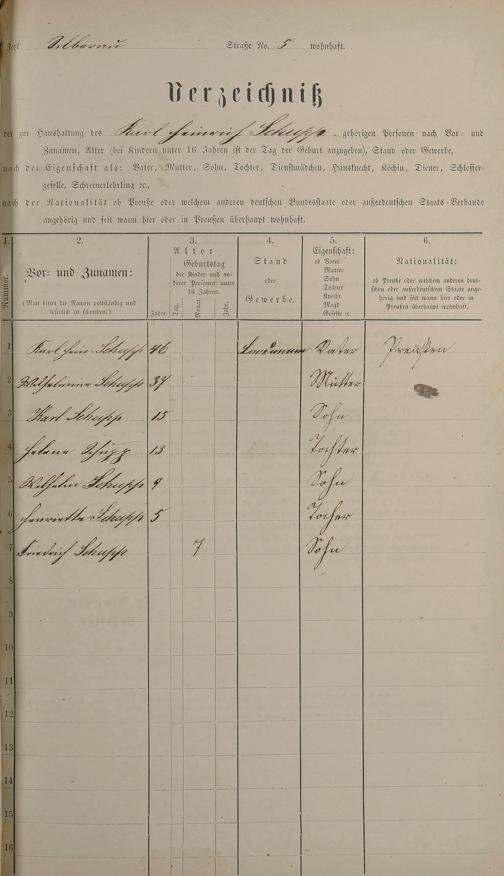 Jetzt Silberau Straße No. 5 wohnhaft.
Verzeichniß
der zur Haushaltung des Karl Heinrich Schupp gehörigen Personen nach Vor- und
Zunamen, Alter (bei Kindern unter 16 Jahren ist der Tag der Geburt anzugeben), Stand oder Gewerbe,
nach der Eigenschaft als: Vater, Mutter, Sohn, Tochter, Dienstmädchen, Hausknecht, Köchin, Diener, Schlosser-
geselle, Schreinerlehrling ꝛc.,
nach der Nationalität ob Preuße oder welchem anderen deutschen Bundesstaate oder außerdeutschen Staats-Verbande
angehörig und seit wann hier oder in Preußen überhaupt wohnhaft.
1. 2. 3. 4. 5. 6.
Nummer.
Vor- und Zunamen:
(Man bittet die Namen vollständig und
leserlich zu schreiben.)
Alter
Geburtstag
der Kinder und an-
derer Personen unter
16 Jahren.
Jahre. Tag. Monat. Jahr.
Stand
oder
Gewerbe.
Eigenschaft:
ob Vater
Mutter
Sohn
Tochter
Knecht
Magd
Geselle ꝛc.
Nationalität:
ob Preuße oder welchem anderen deut-
schen oder außerdeutschen Staate ange-
hörig und seit wann hier oder in
Preußen überhaupt wohnhaft.
1 Karl Hein. Schupp 46 Landmann Vater Preußen
2 Wilhelmine Schupp 37 Mutter
3 Karl Schupp 15 Sohn
4 Helene Schupp 13 Tochter
5 Wilhelm Schupp 9 Sohn
6 Henriette Schupp 5 Tocher
7 Friedrich Schupp 7 Sohn
8
9
10
11
12
13
14
15
16